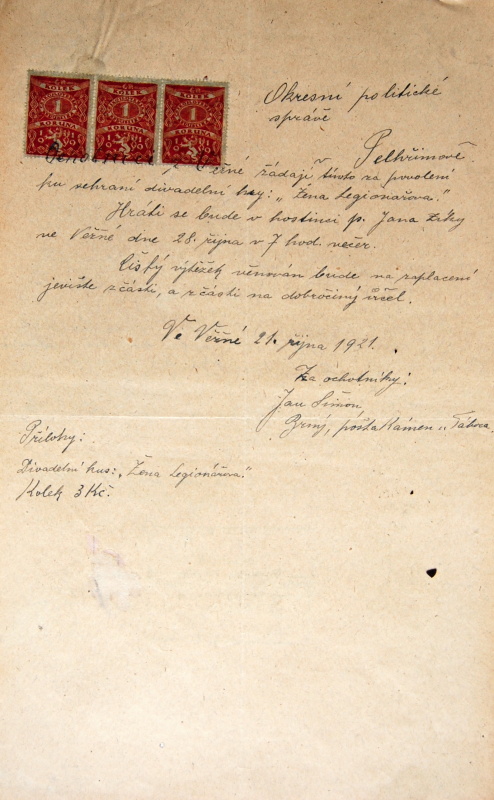 KOLEK
1
KORUNA
KOLEK
1
KORUNA
KOLEK
1
KORUNA
Okresní politické
správě
v Pelhřimově
z Věžné žádají tímto za povolení
ku sehraní divadelní hry: „Žena legionářova."
Hráti se bude v hostinci p. Jana
ve Věžné dne 28. října v 7 hod. večer.
Čistý výtěžek věnován bude na zaplacení
jeviště zčásti, a zčásti na dobročiný účel.
Ve Věžné 21. října 1921.
Za ochotníky:
Jan Šimon
pošta Kámen u Tábora
Přílohy:
Divadelní kus: „Žena legionářova."
Kolek 3 Kč.